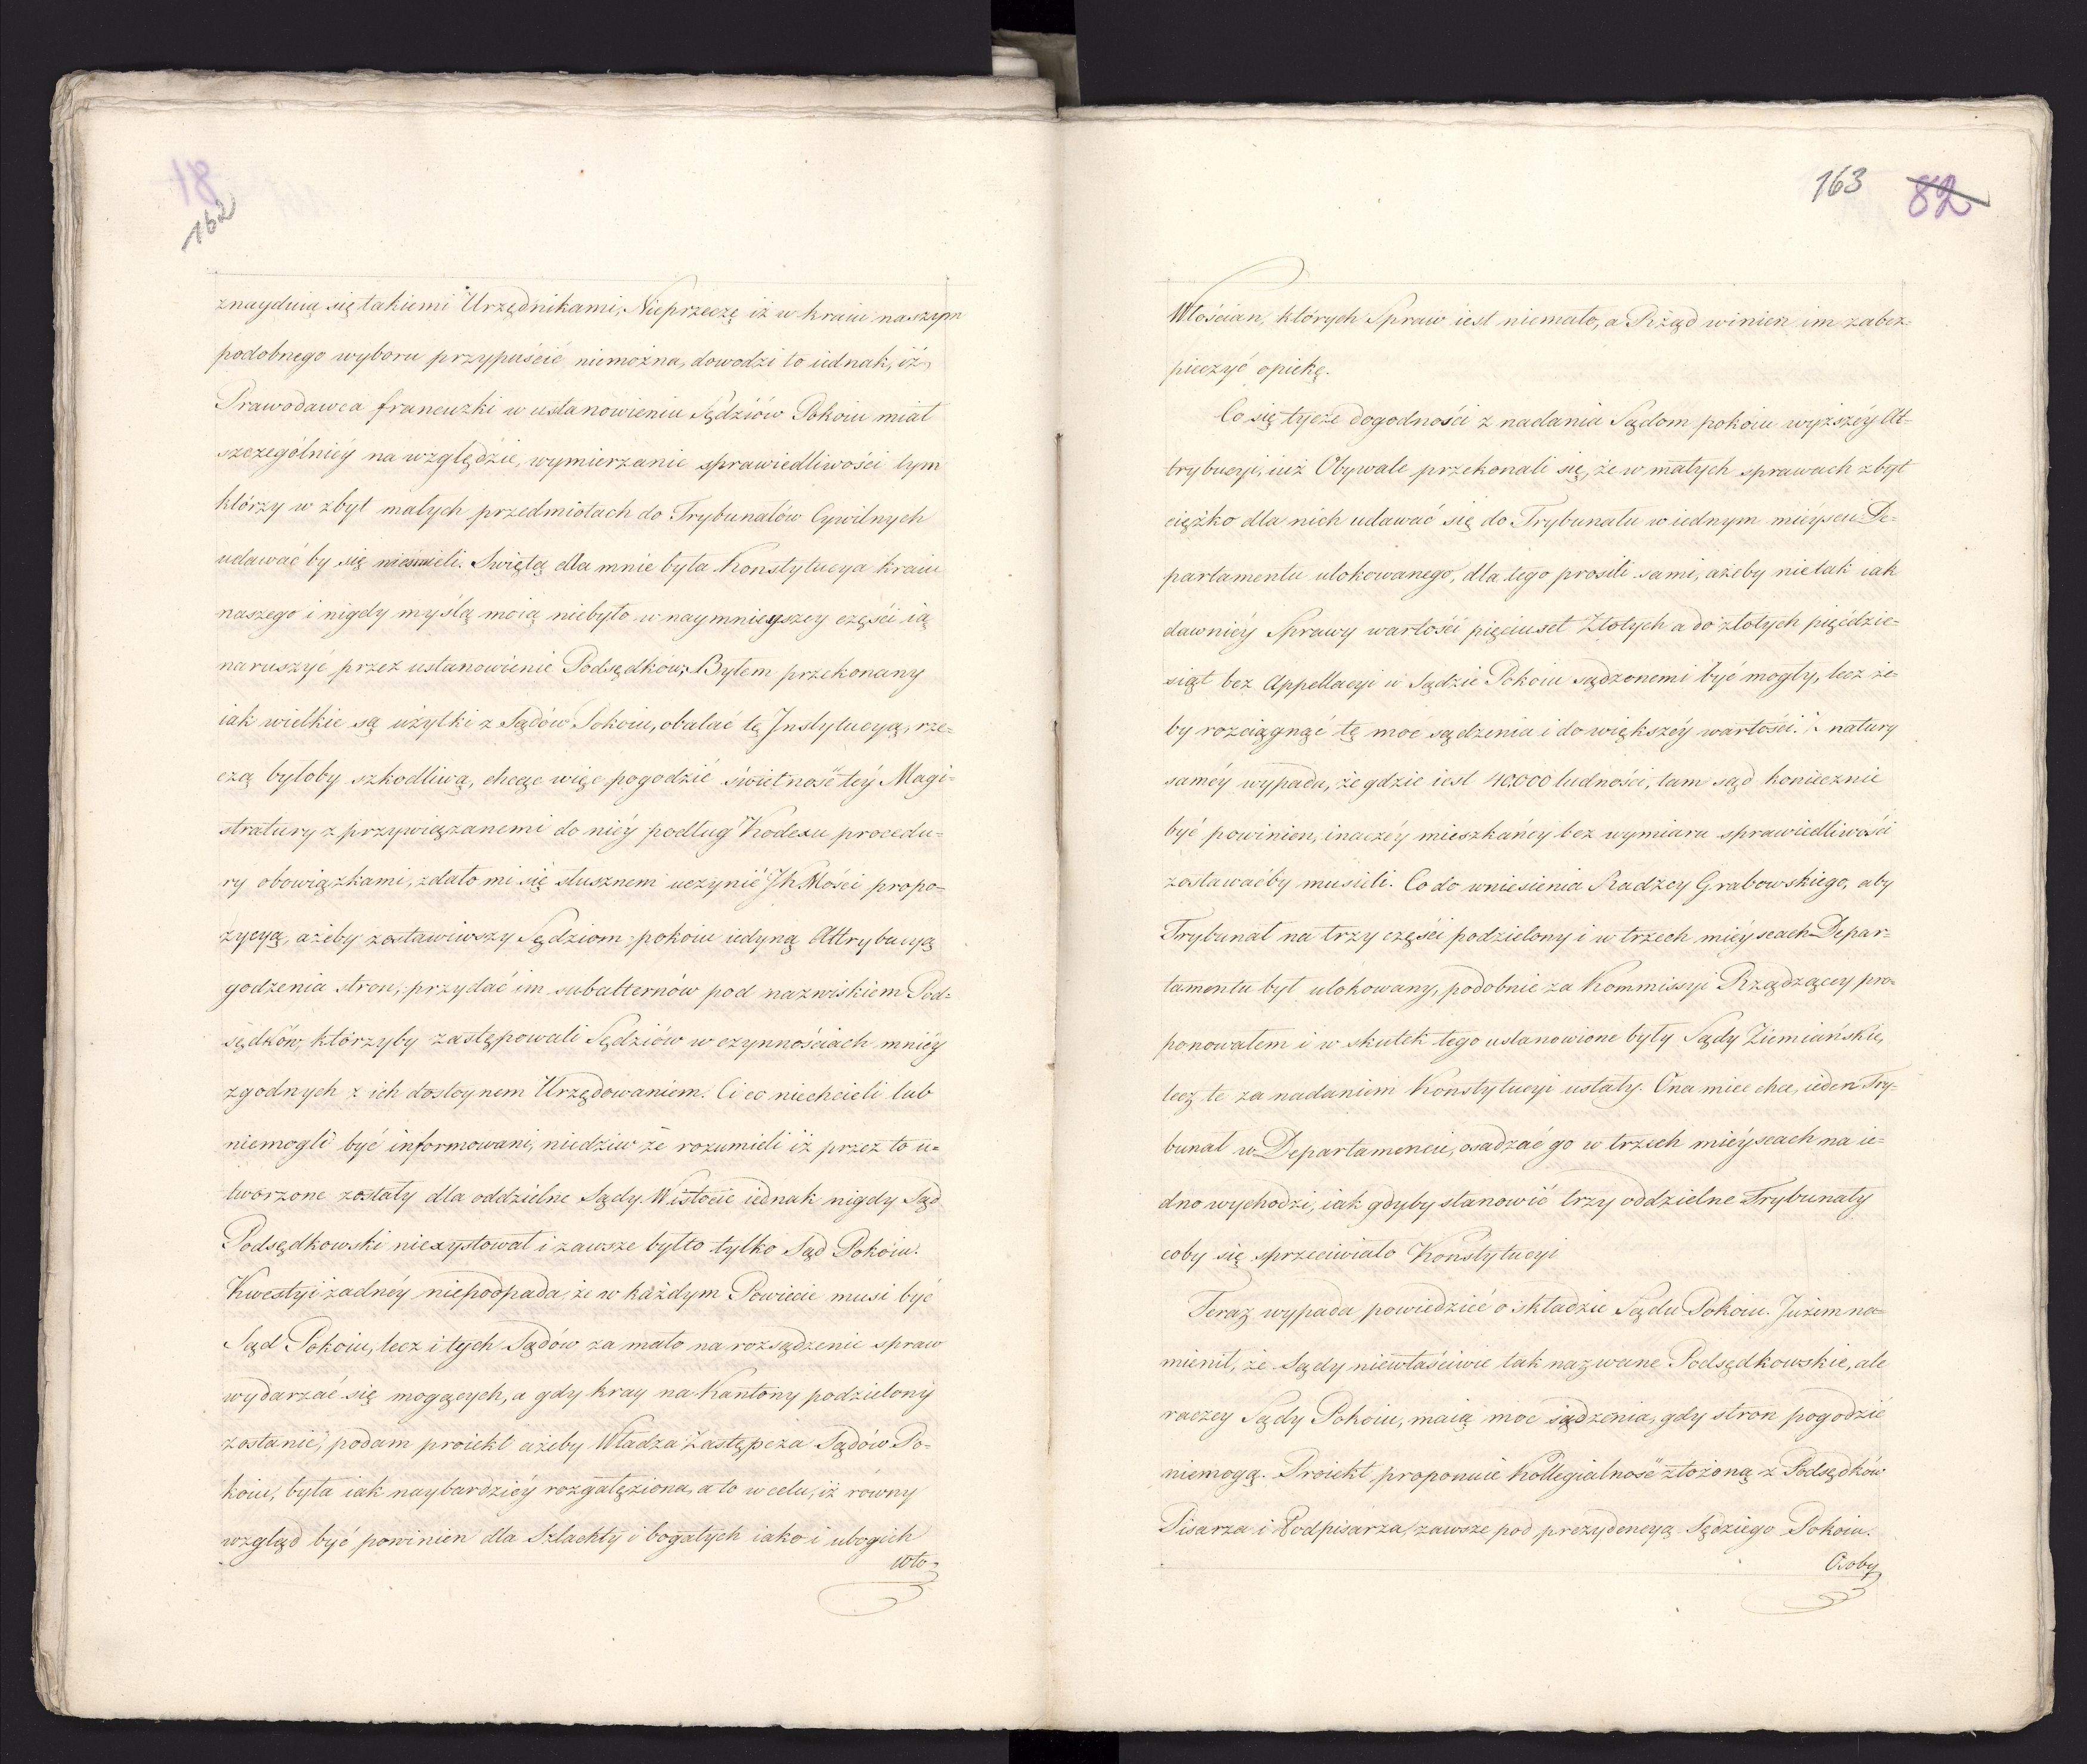 81
162
znayduią się takiemi Urzędnikami, Nieprzeczę iż w kraiu naszym
podobnego wyboru przypuścić niemożna, dowodzi to iednak, iż
Prawodawca francuzki w ustanowieniu Sędziów Pokoiu miał
szczególniéy na względzie, wymierzanie sprawiedliwości tym
którzy w zbyt małych przedmiotach do Trybunałów Cywilnych
udawać by się niesmieli. Swiętą dla mnie była Konstytucya kraiu
naszego i nigdy myślą moią niebyło w naymnieyszey części ią
naruszyć przez ustanowienie Podsędków; Byłem przekonany
iak wielkie są użytki z Sądów Pokoiu, obalać tę Instytucyą, rze-
czą byłoby szkodliwą, chcąc więc pogodzić świetność téy Magi-
stratury z przywiązanemi do niéy podług Kodexu procedu-
ry obowiązkami, zdało mi się słusznem uczynić JK Mości propo-
zycyą, ażeby zostawiwszy Sędziom pokoiu iedyną Attrybucyą
godzenia stron, przydać im subalternów pod nazwiskiem Pod-
sędków, którzyby zastępowali Sędziów w czynnościach mniéy
zgodnych z ich dostoynem Urzędowaniem. Ci co niechcieli lub
niemogli być informowani, niedziw że rozumieli iż przez to u-
tworzone zostały dla oddzielne Sądy. W istocie iednak nigdy Sąd
Podsędkowski niexystował i zawsze byłto tylko Sąd Pokoiu.
Kwestyi żadnéy niepodpada, że w każdym Powiecie musi być
Sąd Pokoiu, lecz i tych Sądów za mało na rozsądzenie spraw
wydarzać się mogących, a gdy kray na Kantony podzielony
zostanie, podam proiekt ażeby Władza Zastępcza Sądów Po-
koiu, była iak naybardziéy rozgałęziona, a to w celu, iż równy
wzgląd być powinien dla Szlachty i bogatych iako i ubogich
Wło-
163 82
Włościan, których Spraw iest niemało, a Rząd winien im zabez-
pieczyć opiekę.
Co się tycze dogodności z nadania Sądom pokoiu wyższéy At-
trybucyi, iuż Obywatele przekonali się, że w małych sprawach zbyt
ciężko dla nich udawać się do Trybunału w iednym mieyscu De-
partamentu ulokowanego, dla tego prosili sami, ażeby nietak iak
dawniéy Sprawy wartości pięciuset Złotych a do złotych pięćdzie-
siąt bez Appellacyi w Sądzie Pokoiu sądzonemi być mogły, lecz że-
by rozciągnąć tę moc sądzenia i do większéy wartości. Z natury
saméy wypada, że gdzie iest 40,000 ludności, tam sąd koniecznie
być powinien, inaczéy mieszkańcy bez wymiaru sprawiedliwości
zostawaćby musieli. Co do wniesienia Radzcy Grabowskiego, aby
Trybunał na trzy części podzielony i w trzech mieyscach Depar-
tamentu był ulokowany, podobnie za Kommissyi Rządzącey pro-
ponowałem i w skutek tego ustanowione były Sądy Ziemiańskie,
lecz te za nadaniem Konstytucyi ustały. Ona mieć chce, ieden Try-
bunał w Departamencie, osadzać go w trzech mieyscach na ie-
dno wychodzi, iak gdyby stanowić trzy oddzielne Trybunały
coby się sprzeciwiało Konstytucyi
Teraz wypada powiedzieć o składzie Sądu Pokoiu. Jużem na-
mienił, że Sądy niewłaściwie tak nazwane Podsędkowskie, ale
raczey Sądy Pokoiu, maią moc sądzenia, gdy stron pogodzić
niemogą. Proiekt proponuie Kollegialność złożoną z Podsędków
Pisarza i Podpisarza, zawsze pod prezydencyą Sędziego Pokoiu.
Osoby